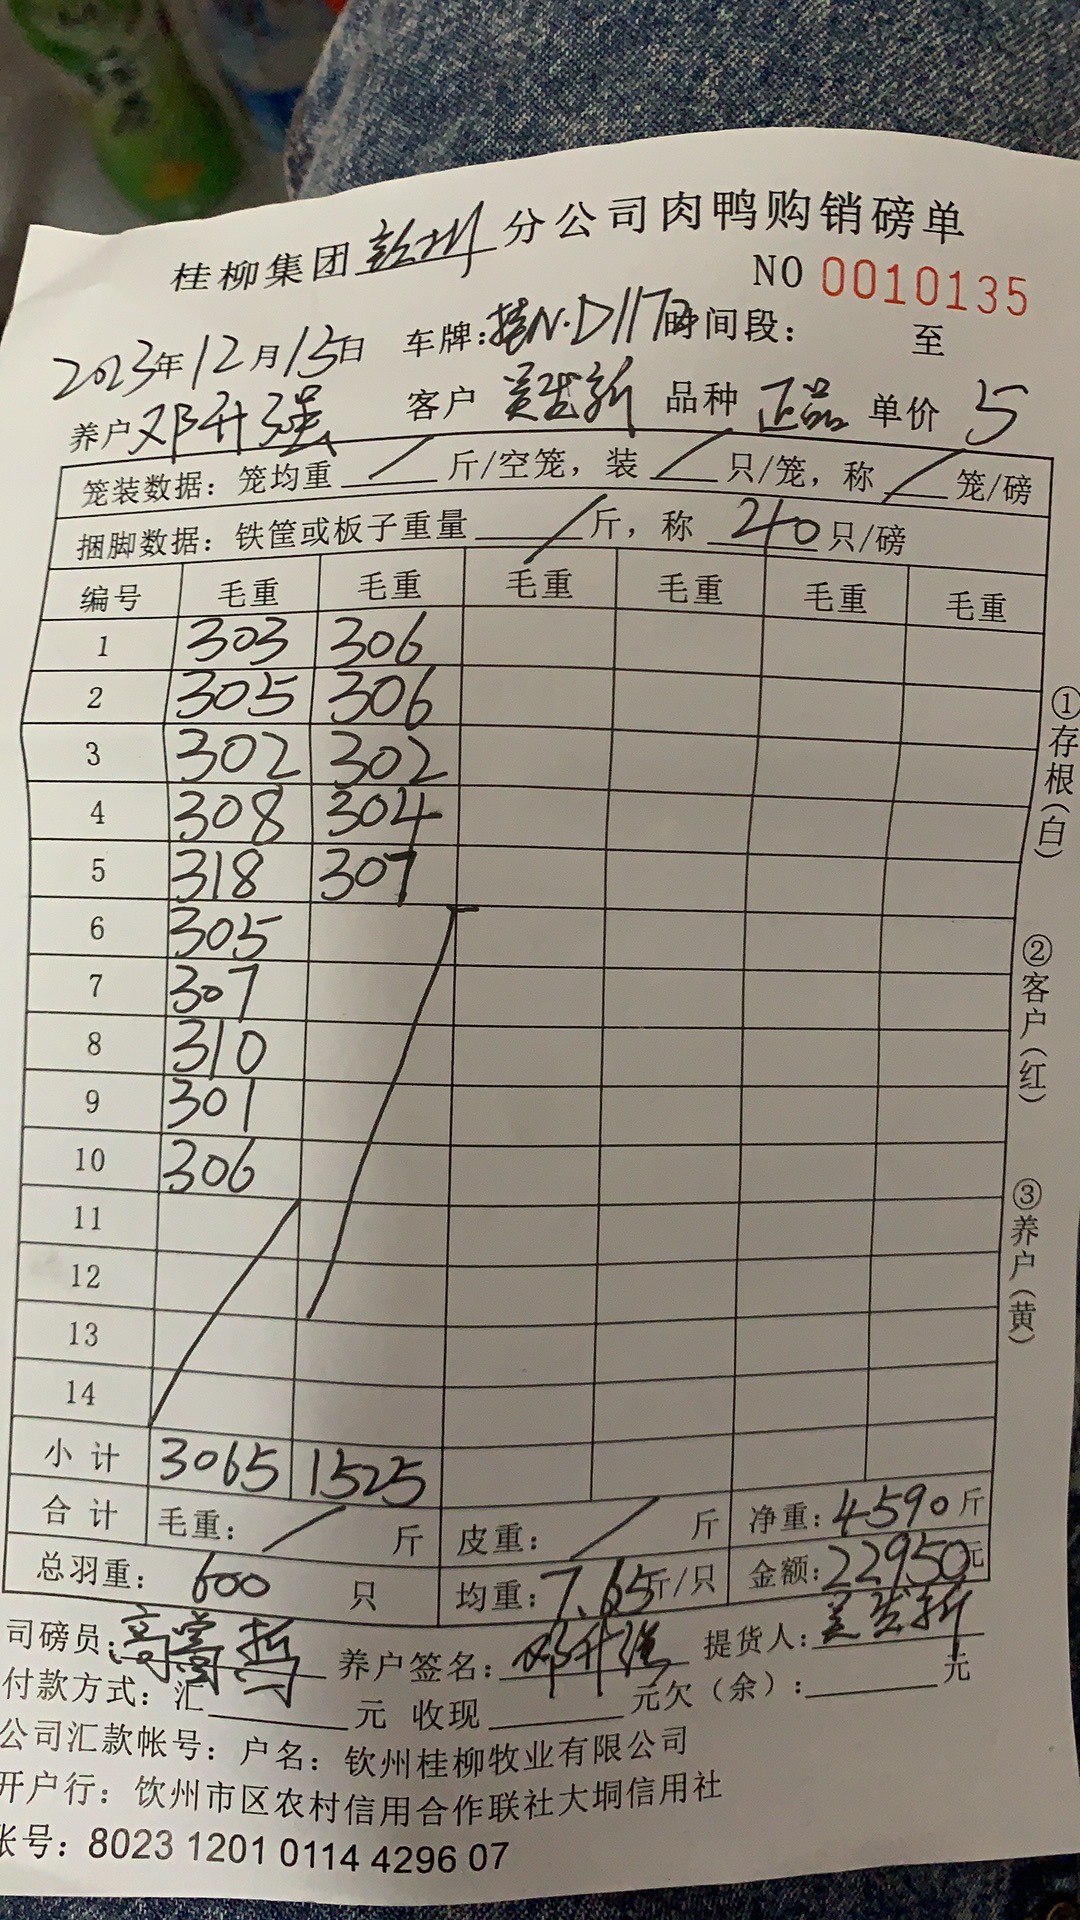 桂柳集团 分公司肉鸭购销磅单
NO 0010135
2023年12月13日 车牌:桂N·D117 时间段: 至
养户邓升强 客户 吴发新 品种 正品 单价 5
笼装数据:笼均重 / 斤/空笼,装 / 只/笼,称 / 笼/磅
捆脚数据:铁筐或板子重量 / 斤,称 40 只/磅
编号 毛重 毛重 毛重 毛重 毛重 毛重
1 303 306
2 305 306
3 302 302
4 308 304
5 318 307
6 305
7 307
8 310
9 301
10 306
11
12
13
14
小计 3065 1525
合计 毛重: / 斤 皮重: / 斤 净重:4590斤
总羽重: 600 只 均重:7.65斤/只 金额:22950元
司磅员: 养户签名:邓升强 提货人:吴发新
付款方式:汇 元 收现 元欠(余): 元
公司汇款帐号:户名:钦州桂柳牧业有限公司
开户行:饮州市区农村信用合作联社大垌信用社
帐号:8023 1201 0114 4296 07
①存根(白)
②客户(红)
③养户(黄)